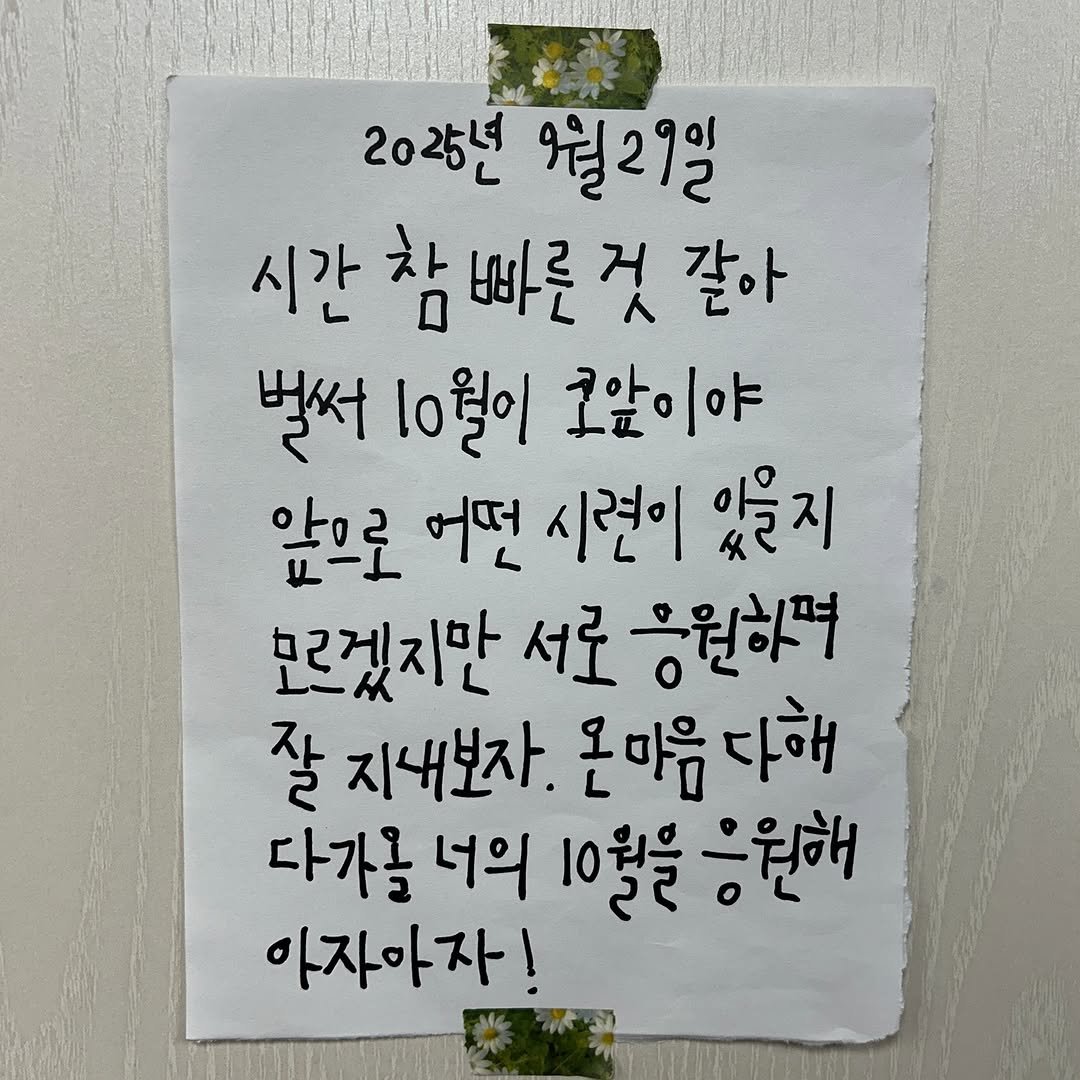 2025년 9월 29일
시간 참 빠른 것 같아
벌써 10월이 코앞이야
앞으로 어떤 시련이 있을지
모르겠지만 서로 응원하며
잘 지내보자. 온 마음 다해
다가올 너의 10월을 응원해
아자아자!